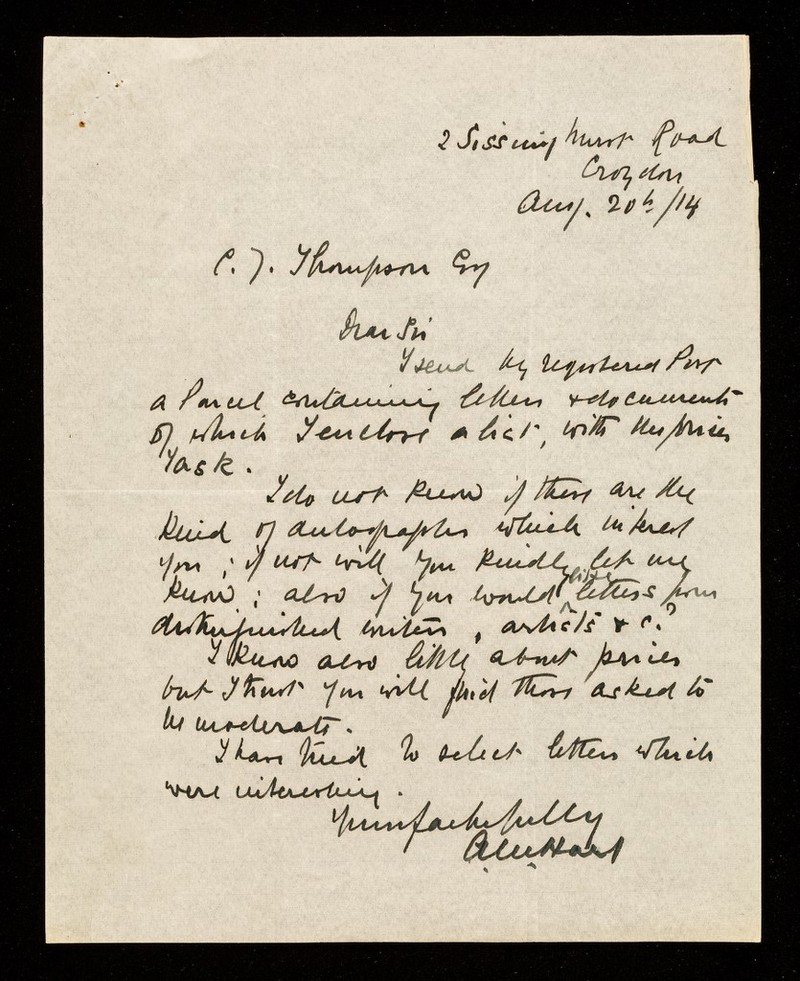 2 Sissinghurst Road
Croydon
Aug. 20th /14
C. J. Thompson Esq
Dear Sir
I send by registered Post
a Parcel containing letters & documents
of which I enclose a list, with the prices
I ask.
I do not know if these are the
kind of autographs which interest
you ; if not will you kindly let me
know ; also if you would like letters from
distinguished writers, artists & c.?
I know also little about prices
but I trust you will find those asked to
be moderate.
I have tried to select letters which
were interesting.
Yours faithfully
Hart